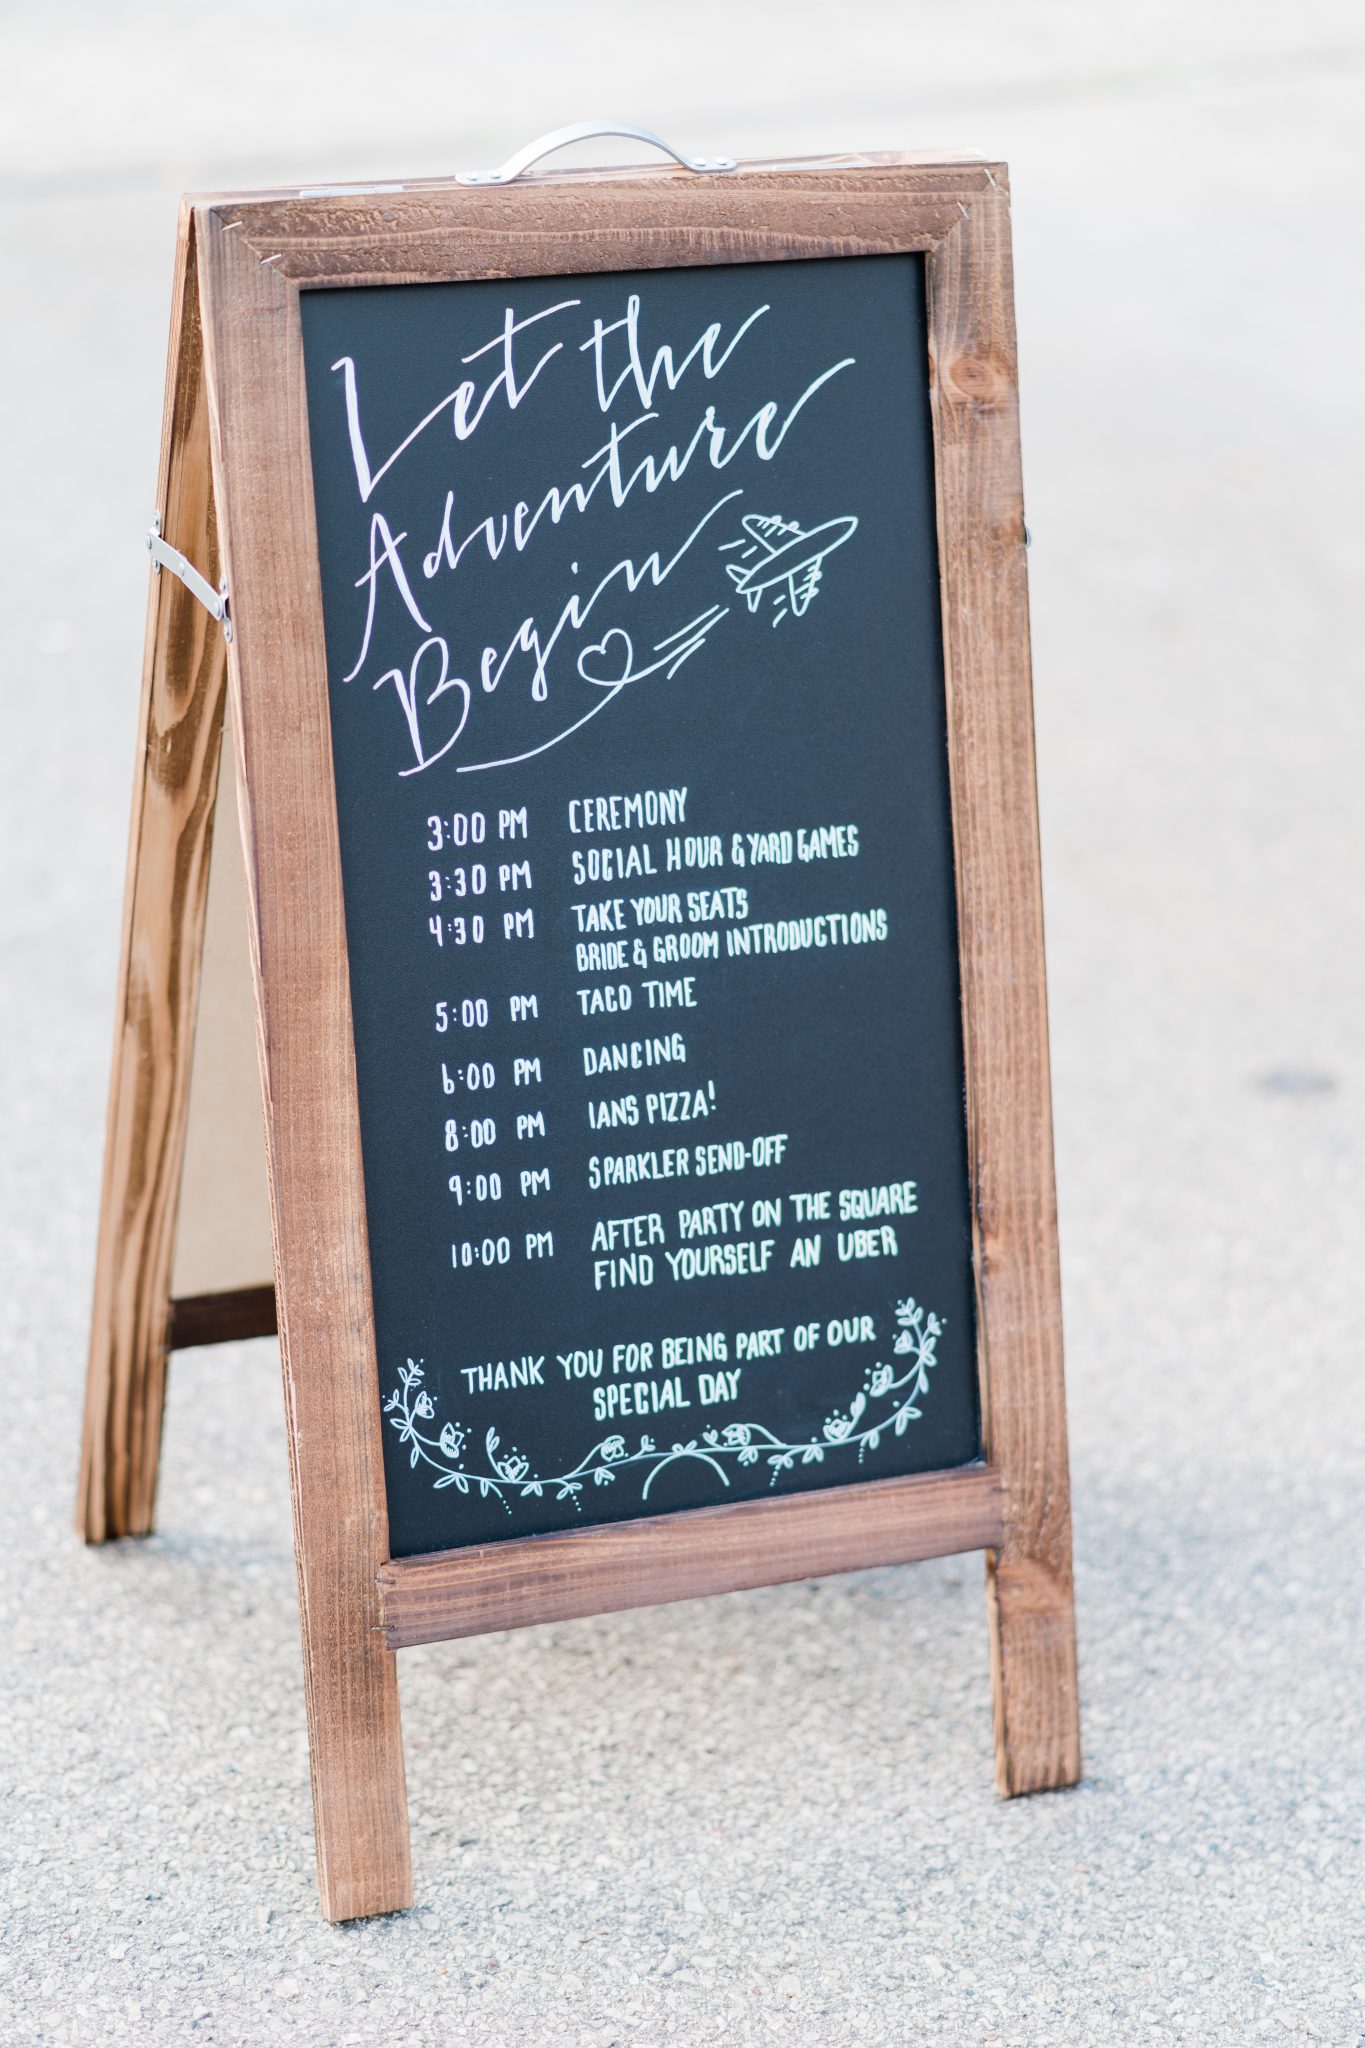 Let the
Adventure
Begin
3:00 PM CEREMONY
3:30 PM SOCIAL HOUR & YARD GAMES
4:30 PM TAKE YOUR SEATS
BRIDE & GROOM INTRODUCTIONS
5:00 PM TACO TIME
6:00 PM DANCING
8:00 PM IANS PIZZA!
9:00 PM SPARKLER SEND-OFF
10:00 PM AFTER PARTY ON THE SQUARE
FIND YOURSELF AN UBER
THANK YOU FOR BEING PART OF OUR
SPECIAL DAY